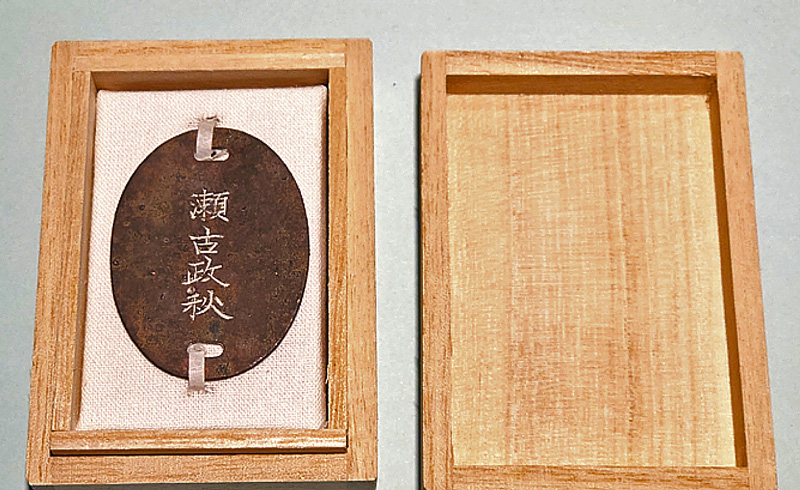 瀬古政秋